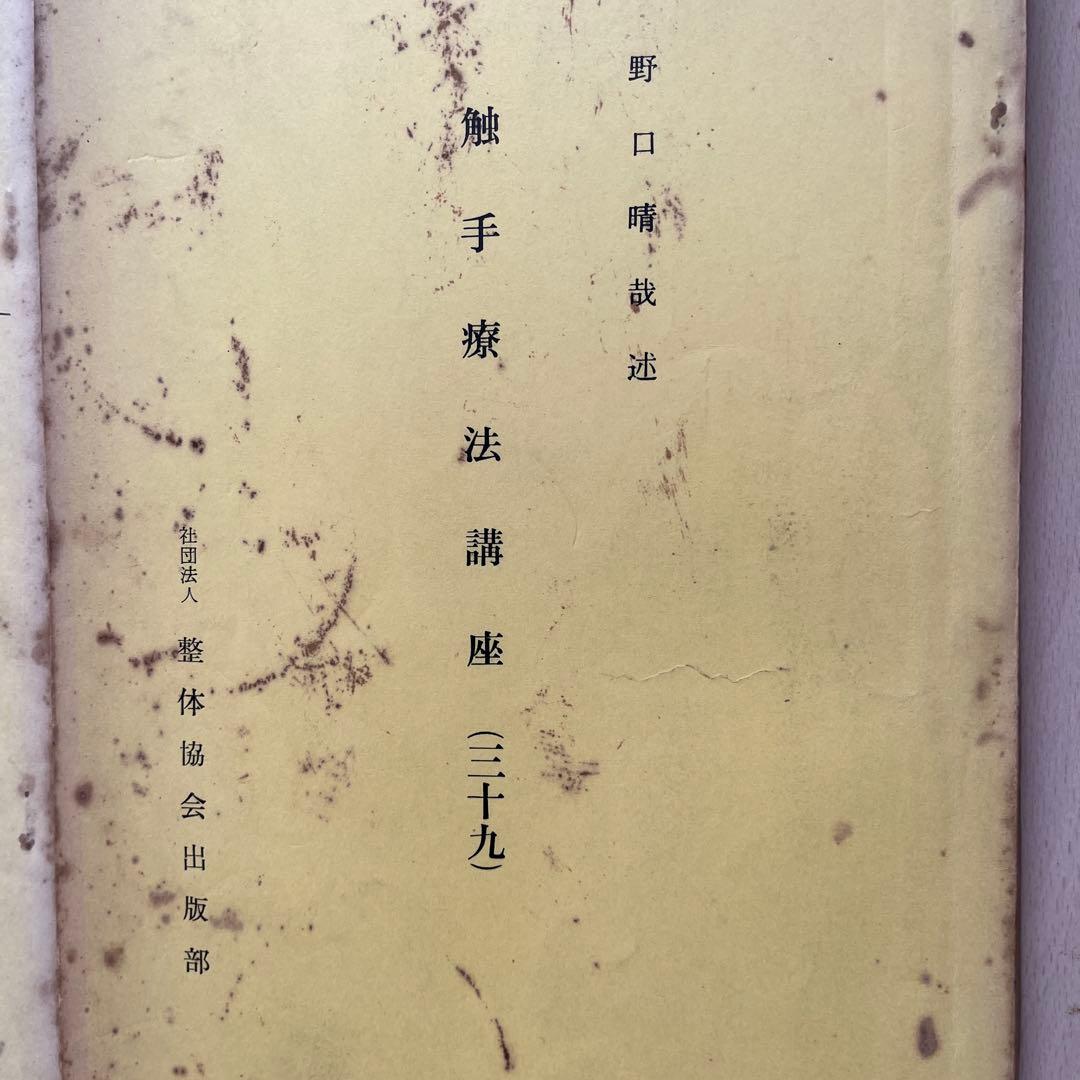 野口晴哉述
触手療法講座（三十九）
社団法人 整体協会出版部